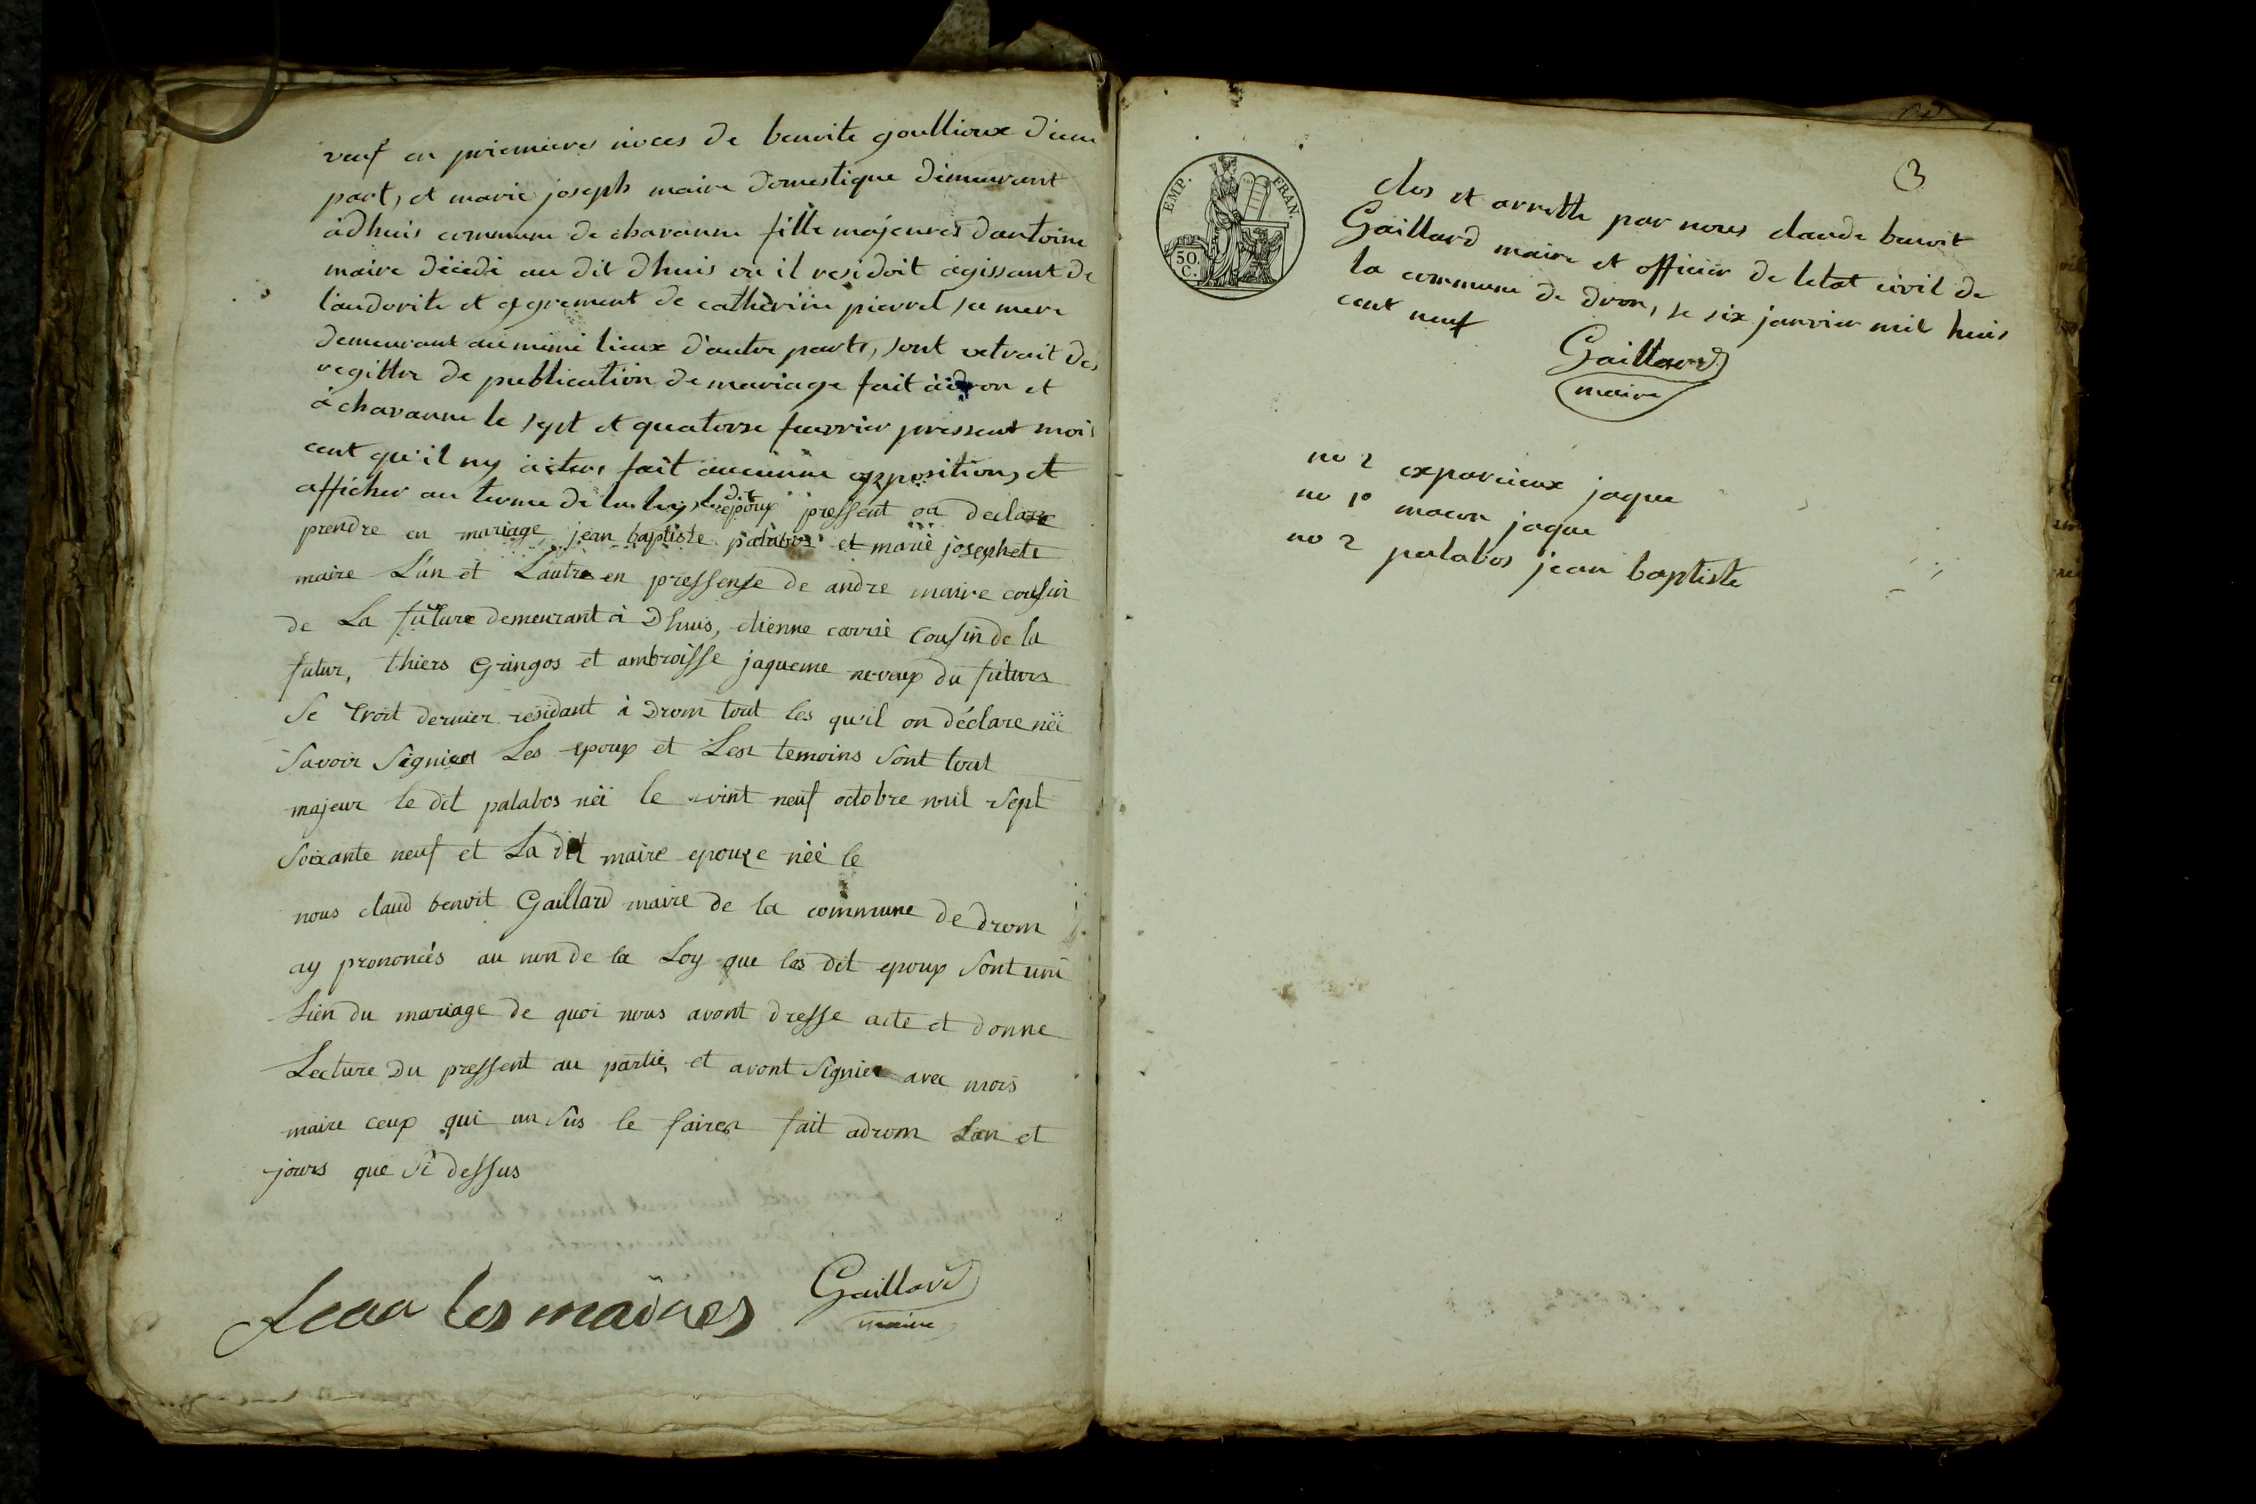 veuf en priemieres noces de benoite goullioux d'eun
part, et marie joseph maire domestique dimeurant
adhuis commune de chavanne fille majeures dantoine
maire décédé au dit dhuis ou il residoit agissant de
l'audorite et agrement de catherine pierrel sa mere
demeurant au mime lieux d'autre parts, sont extrait des
regittre de publication de mariage fait a dron et
a chavanne le sept et quatorze feuvrier pressent mois
cent qu'il ny a étere fait aucunne opposition, et
afficher au terme de la loy, le dit epoux pressent on declare
prendre en mariage jean baptiste palabos et marie josephete
maire L'un et L'autre en pressense de andre maire cousin
de La future demeurant à Dhuis, etienne carrié cousin de la
futur, thiers Gringos et ambroisse jaqueme neveux du futurs
Se troit dernier residant à Drom tout les qu'il on déclare néi
Savoir Signier Les epoux et Les temoins Sont tout
majeur le dit palabos néi le vint neuf octobre mil Sept
Soixante neuf et La dit maire epouse néé le
nous claud benoit Gaillard maire de la commune de drom
ay prononcés au nom de la Loy que les dit epoux Sont uni
Lien du mariage de quoi nous avont dresse acte et donne
Lecture Du pressent au partie, et avont Signier avec mois
maire ceux qui on Sûs le faire fait adrom Lan et
jours que Si dessus
Jean les maires
Gaillard
maire
EMP. FRAN.
50.
C.
3
clos et arrette par nous claude benoit
Gaillard maire et officiir de letat civil de
la commune de dron, le six janvier mil huis
cent neuf
Gaillard
maire
no 2 exparcieux jaque
no 10 macon jaque
no 2 palabos jean baptiste